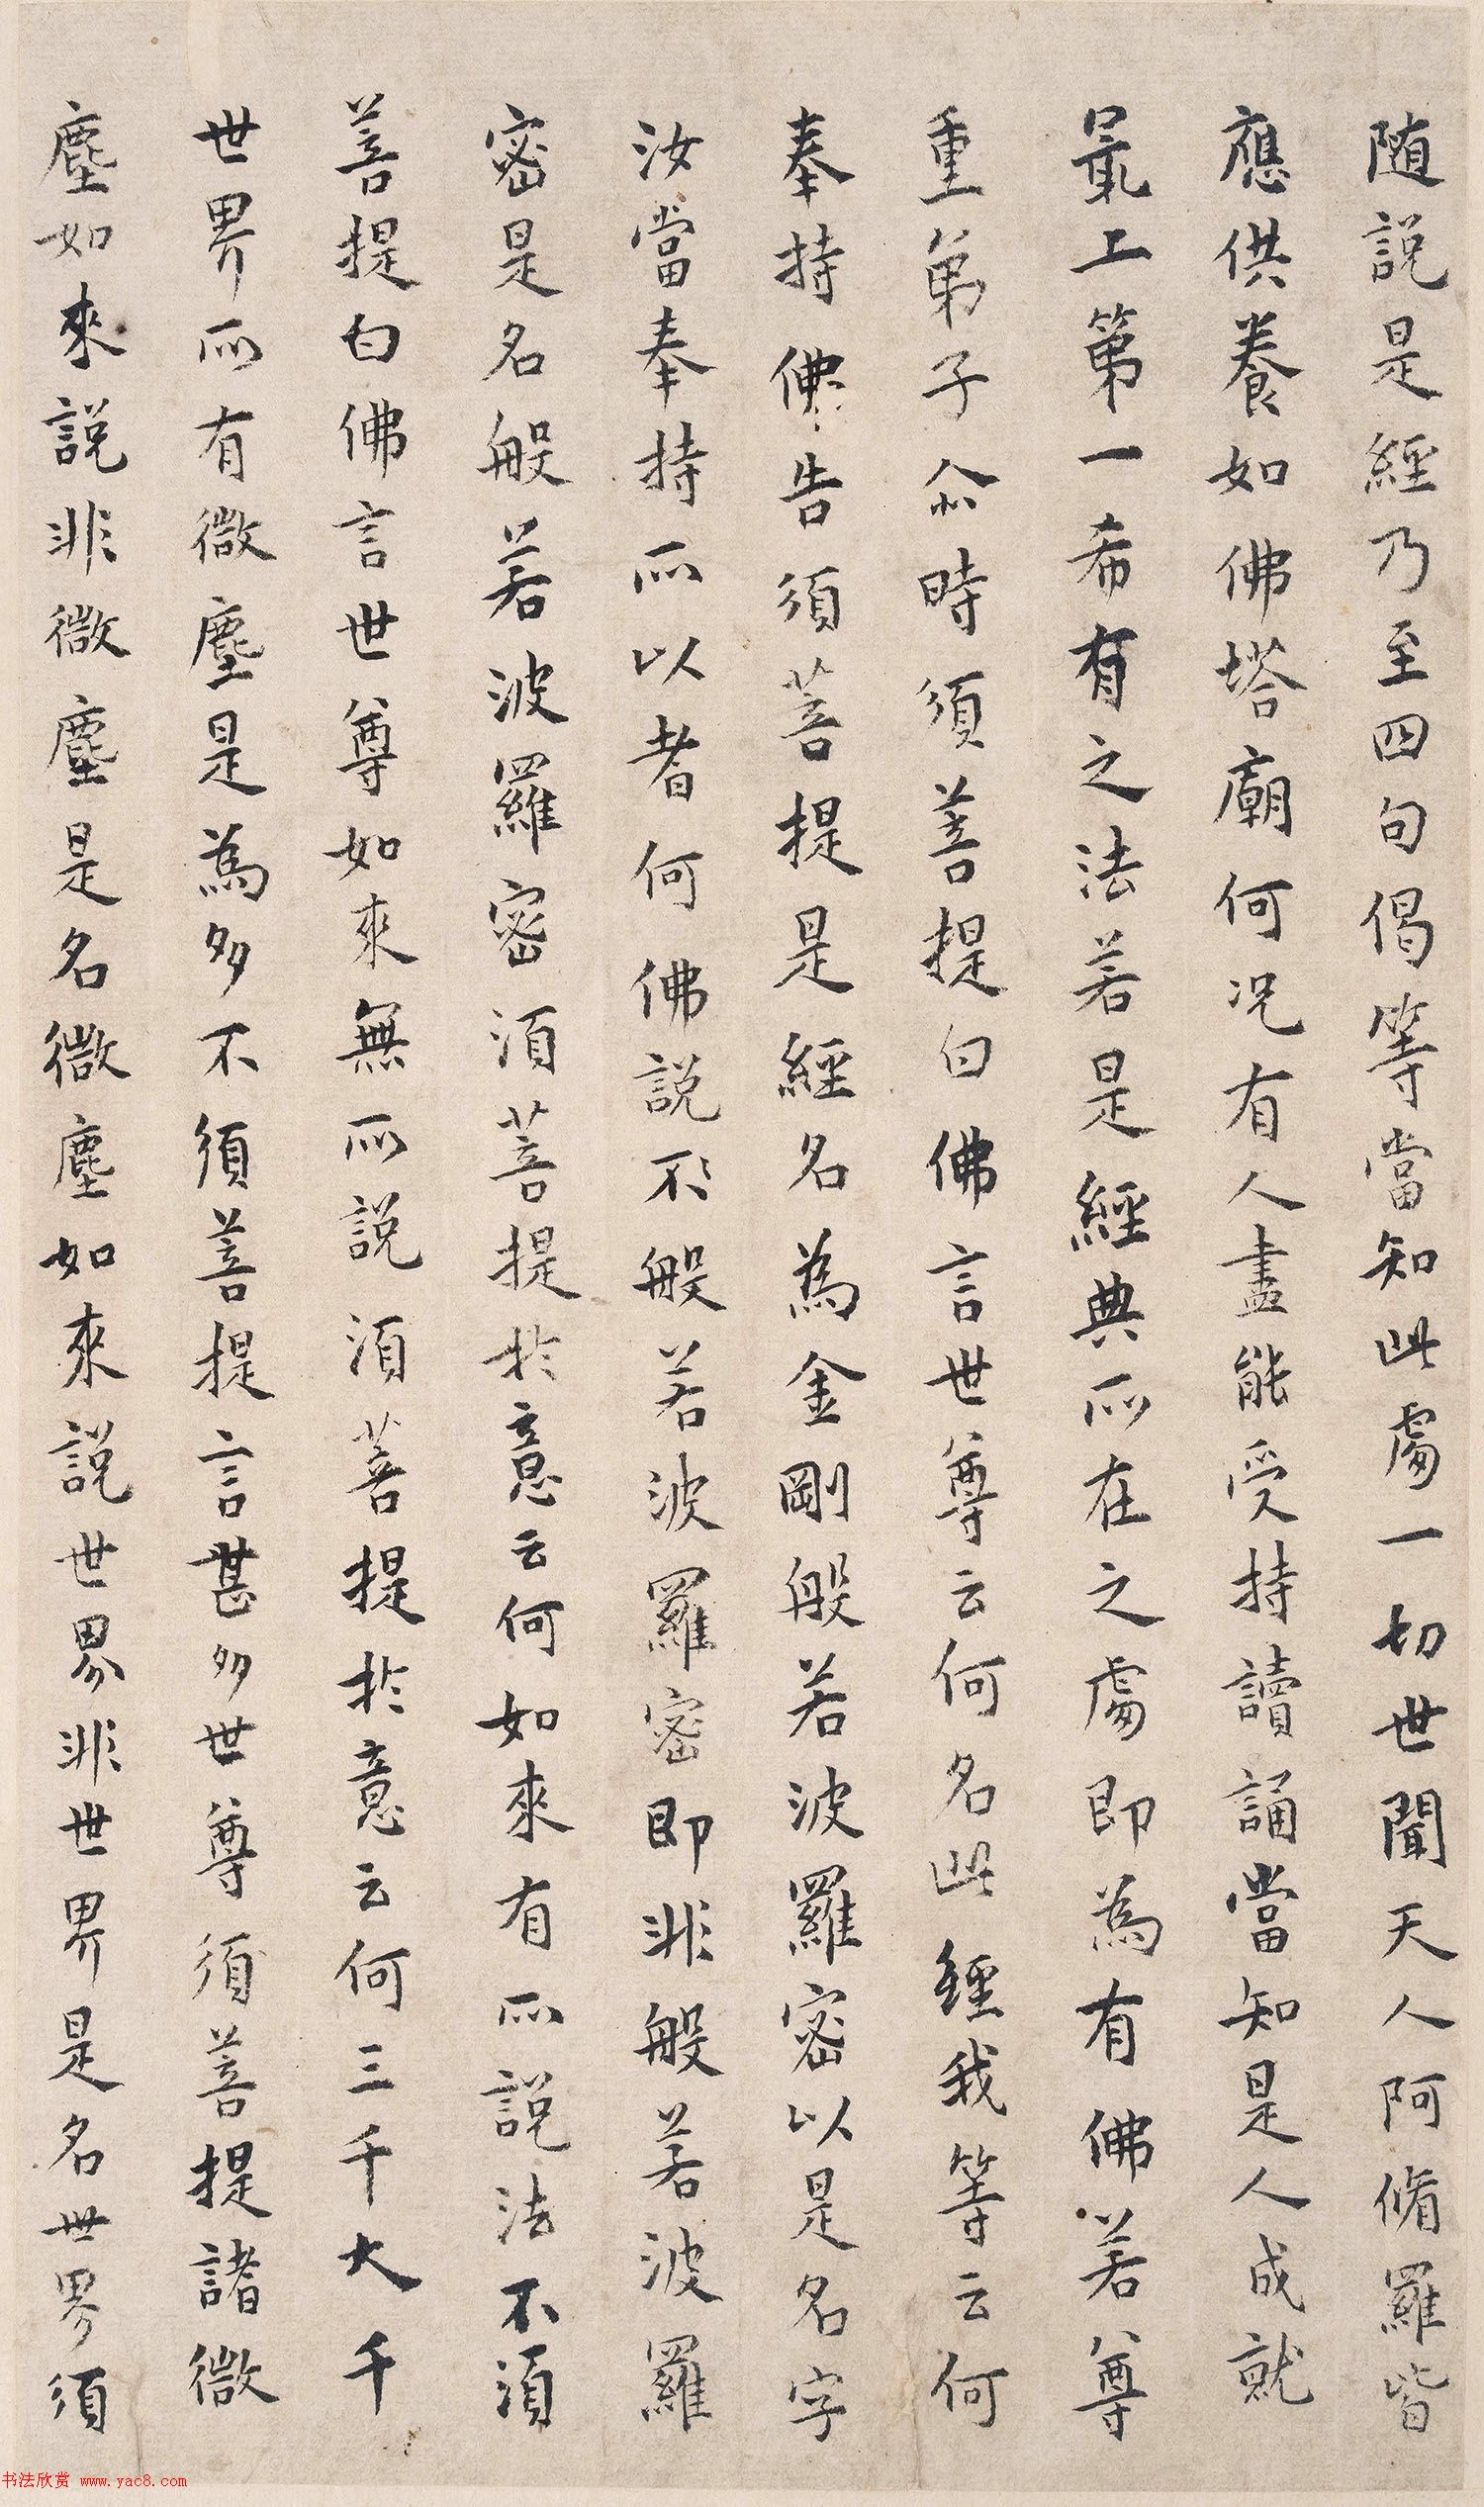 随說是經乃至四句偈等當知此處一切世間天人阿脩羅皆
應供養如佛塔廟何況有人盡能受持讀誦當知是人成就
最上第一希有之法若是經典所在之處即為有佛若尊
重弟子尒時須菩提白佛言世尊云何名此經我等云何
奉持佛告須菩提是經名為金剛般若波羅密以是名字
汝當奉持所以者何佛說不般若波羅密即非般若波羅
密是名般若波羅密須菩提於意云何如來有所說法不須
菩提白佛言世尊如來無所說須菩提於意云何三千大千
世界所有微塵是為多不須菩提言甚多世尊須菩提諸微
塵如來說非微塵是名微塵如來說世界非世界是名世界須
书法欣赏 www.yac8.com